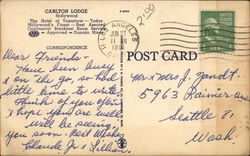 CARLTON LODGE
Hollywood
The Hotel of Tomorrow — Today
Hollywood's Finest — Rest Assured
Continental Breakfast Room Service
Approved — Duncan Hines
CORRESPONDENCE
POST CARD
LOS ANGELES
JUN 27
1951
Dear Friends.
Have been busy
on the go so had
little time to write
think of you often
& hope you are well
will be seeing
you soon. Best Wishes
Claude & Lillian
Mr & Mrs J. Gandt.
5963 Rainier Av
Seattle
Wash.